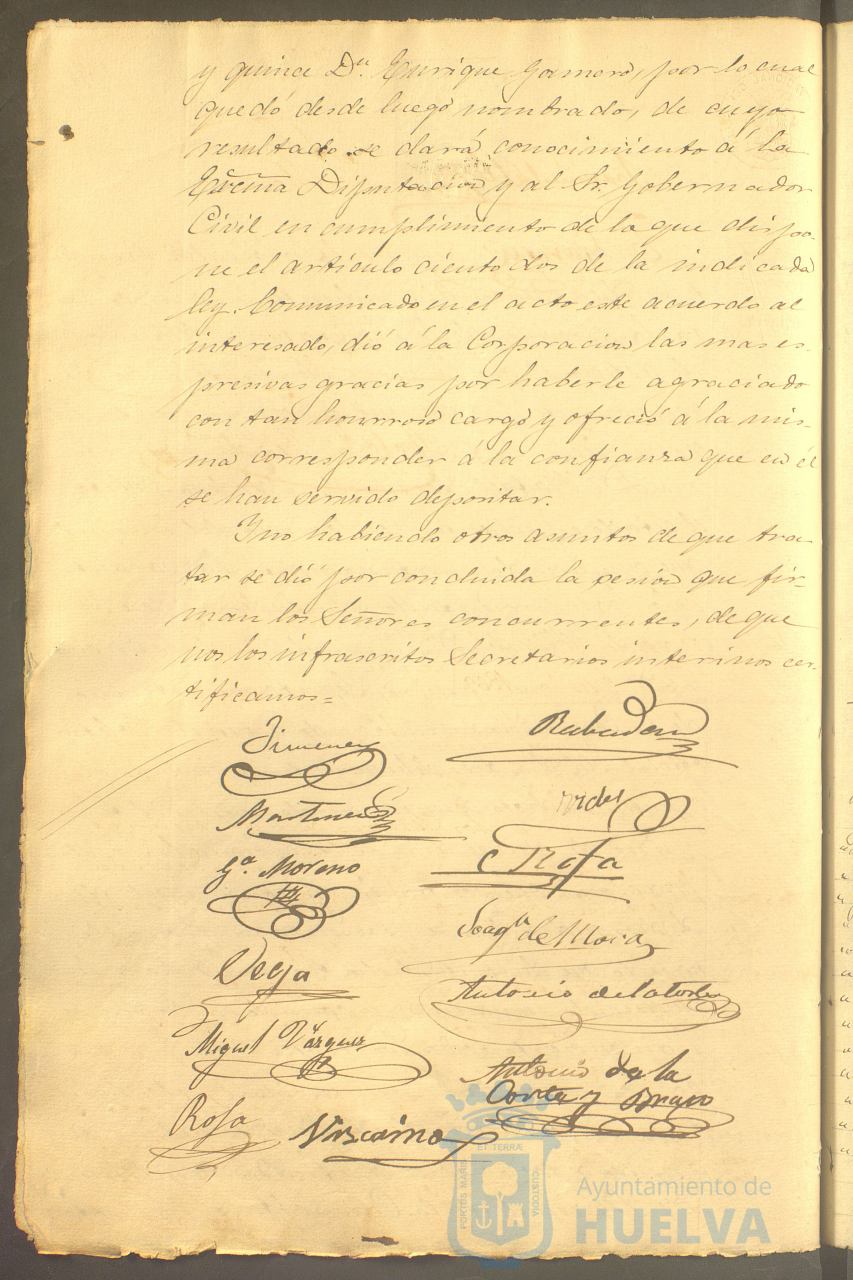 y quince Dn. Enrique Gamero, por lo cual
quedó desde luego nombrado, de cuyo
resultado se dará conocimiento á la
Excma Diputacion y al Sr. Gobernador
Civil en cumplimiento de lo que dispo-
ne el artículo ciento dos de la indicada
ley. Comunicado en el acto este acuerdo al
interesado, dió á la Corporacion las mas es-
presivas gracias por haberle agraciado
con tan honrroso cargo y ofreció á la mis-
ma corresponder á la confianza que en él
se han servido depositar.
Y no habiendo otros asuntos de que tra-
tar se dió por concluida la sesion que fir-
man los Señores concurrentes, de que
nos los infrascritos Secretarios interinos cer-
tificamos=
Jimenez
Rabadan
Martinez
Ga. Moreno
Joaqn. de Mora
Vega
Antonio de la Torre
Miguel Vázquez
Antonio de la
Corte y Bravo
Rosa
Vizcaino
PORTUS MARIS ET TERRÆ CUSTODIA
Ayuntamiento de
HUELVA